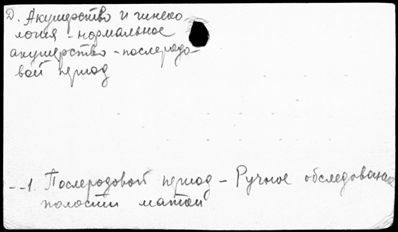 Д. Акушерство и гинеко
логия - нормальное
акушерство - послеродо-
вой период
--1. Послеродовой период - Ручное обследован
полости матки